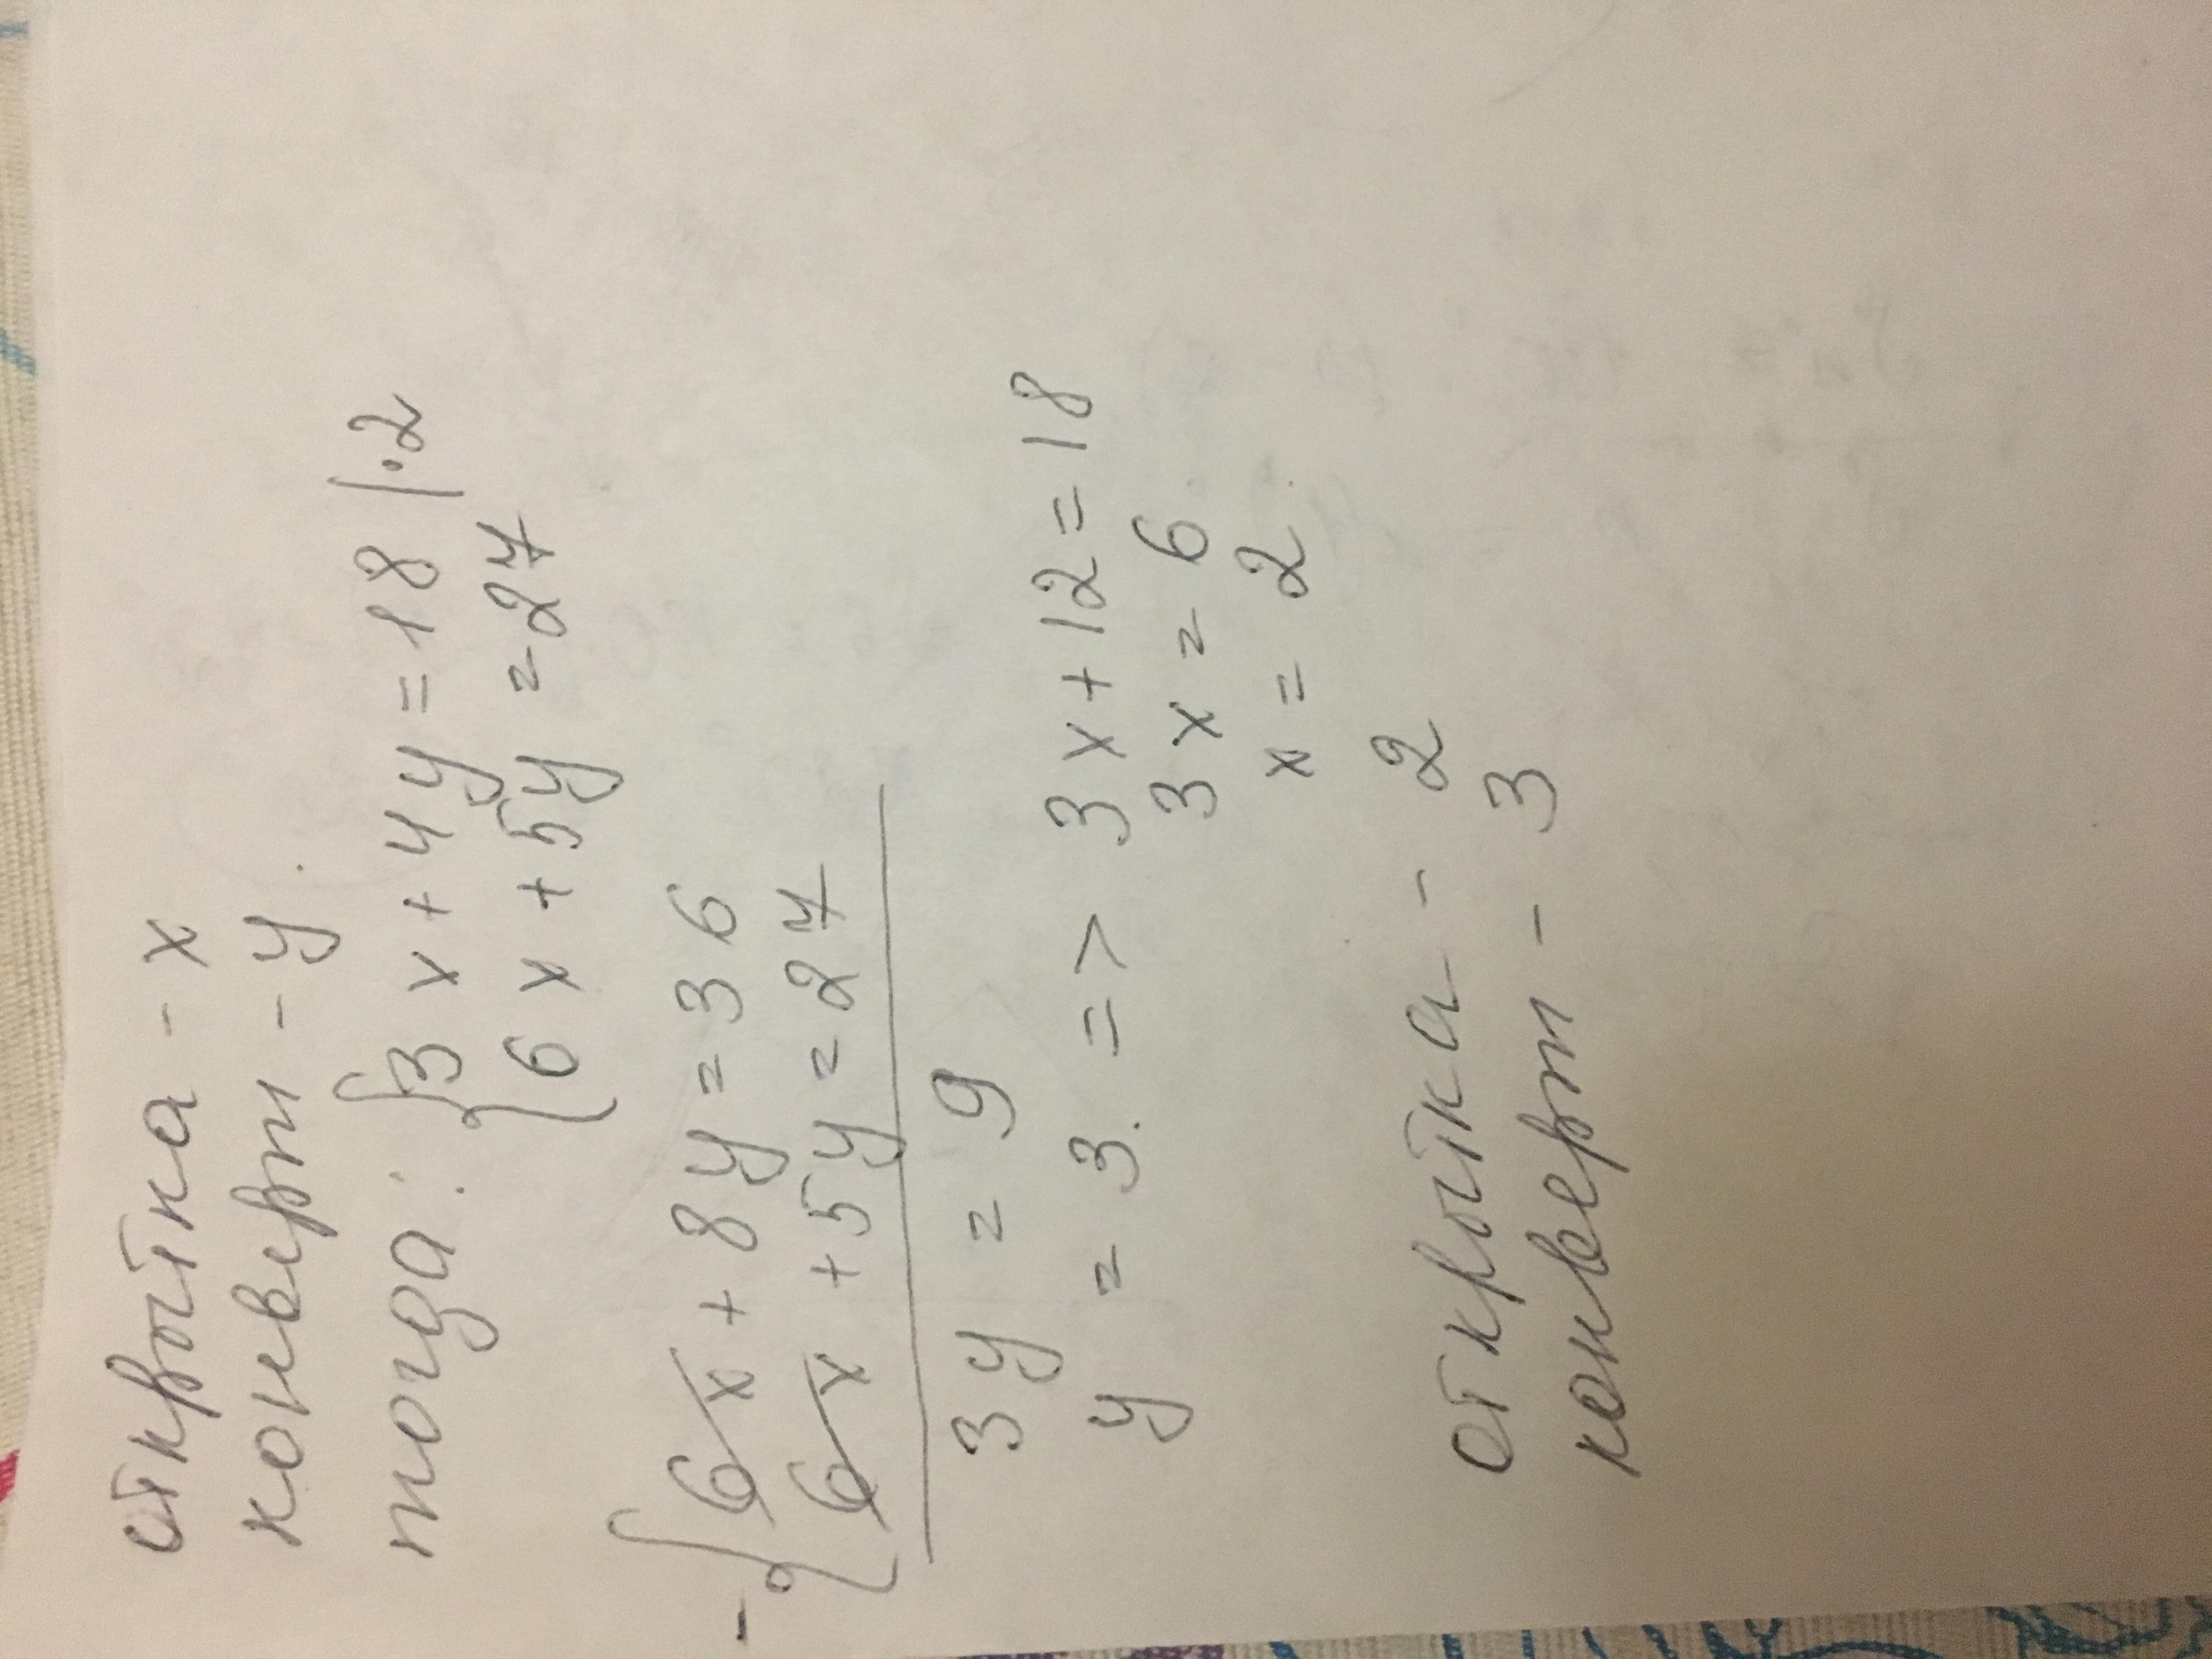 открытка - x
конверт - y.
тогда: {3x + 4y = 18 |·2
{6x + 5y = 27
- {6x + 8y = 36
{6x + 5y = 27
3y = 9
y = 3. => 3x + 12 = 18
3x = 6
x = 2
открытка - 2
конверт - 3